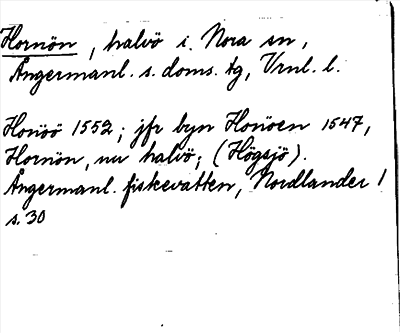 Hornön, halvö i Nora sn,
Ångermanl. s. doms. tg, Vrnl. l.
Honöö 1552; jfr byn Honoen 1547,
Hornön, nu halvö; (Högsjö).
Ångermanl. fiskevatten, Nordlander 1
s. 30